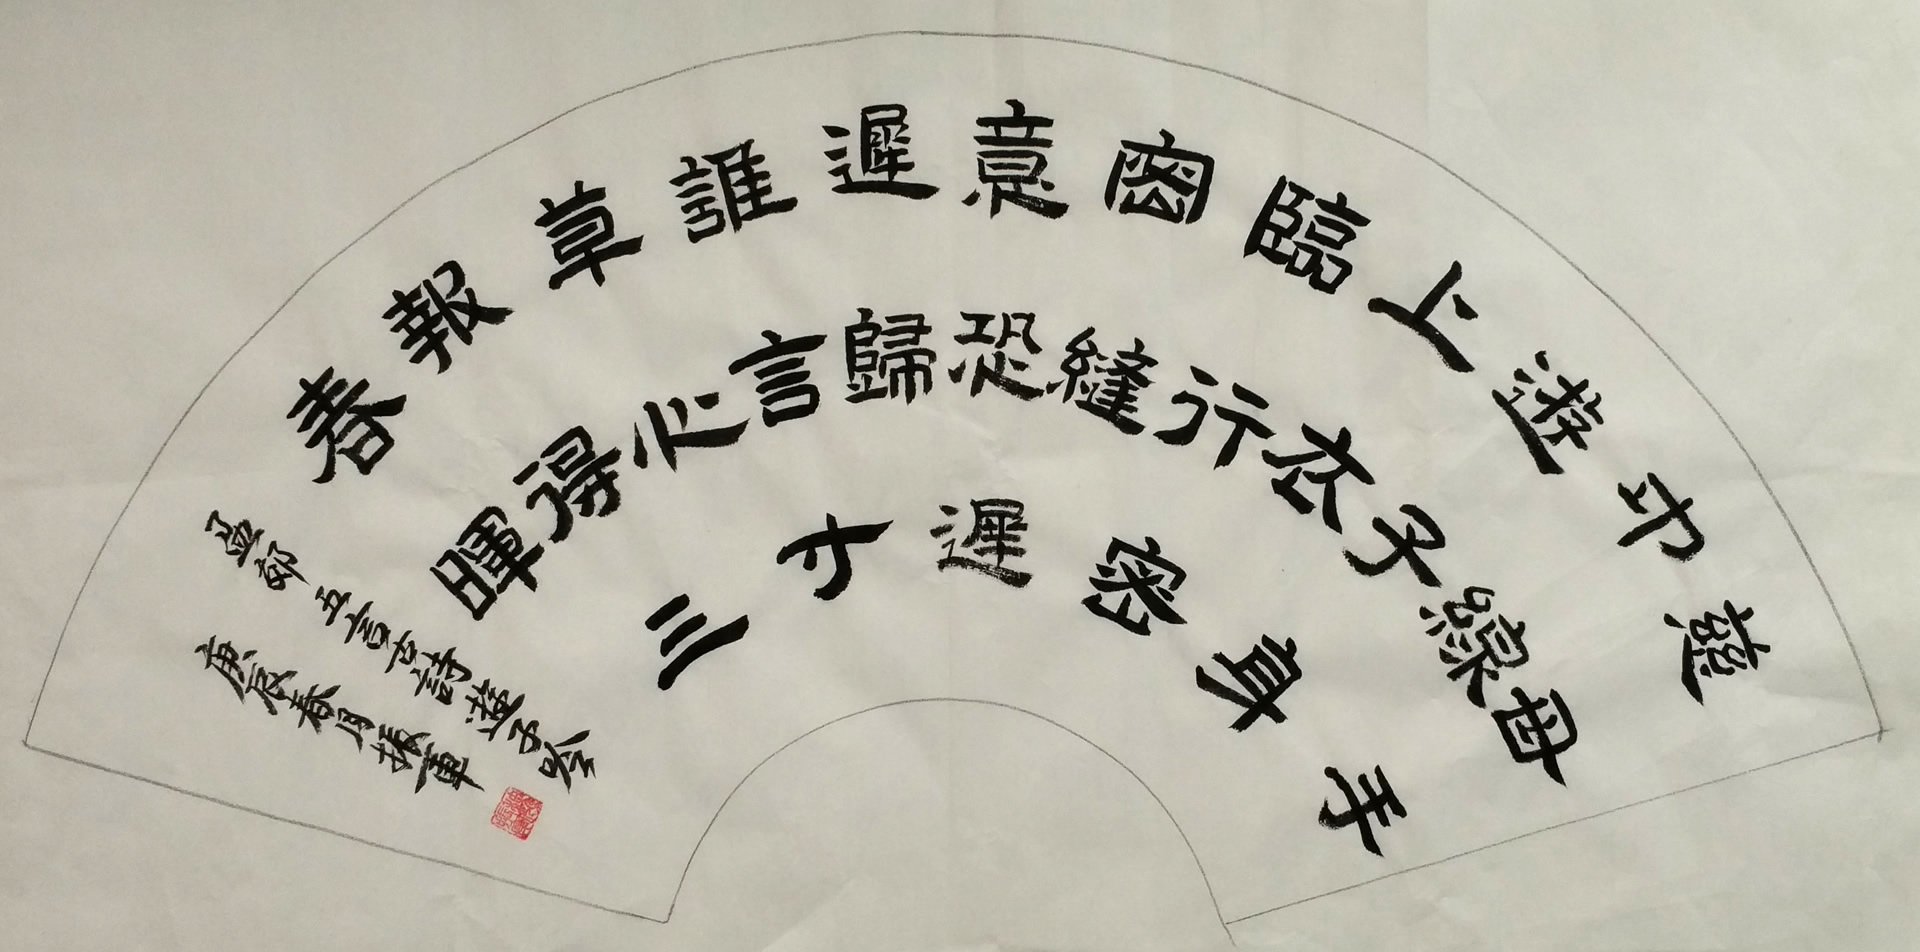 慈母手
中線
遊子身
上衣
臨行密
密縫
意恐遲
遲歸
誰言寸
草心
報得三
春暉
孟郊五言古詩遊子吟
庚辰春月振軍